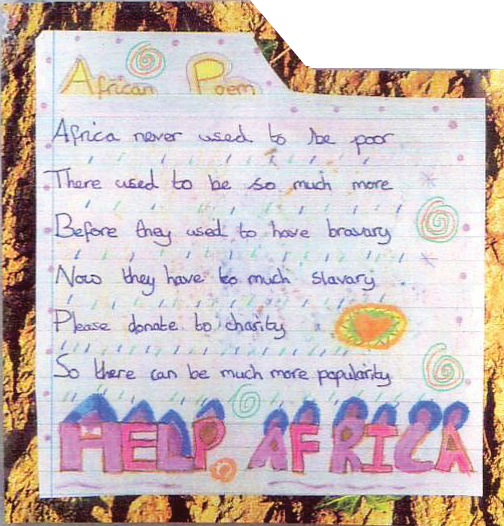 African Poem
Africa never used to be poor
There used to be so much more
Before they used to have bravary
Now they have to much slavary
Please donate to charity
So there can be much more popularity
HELP AFRICA